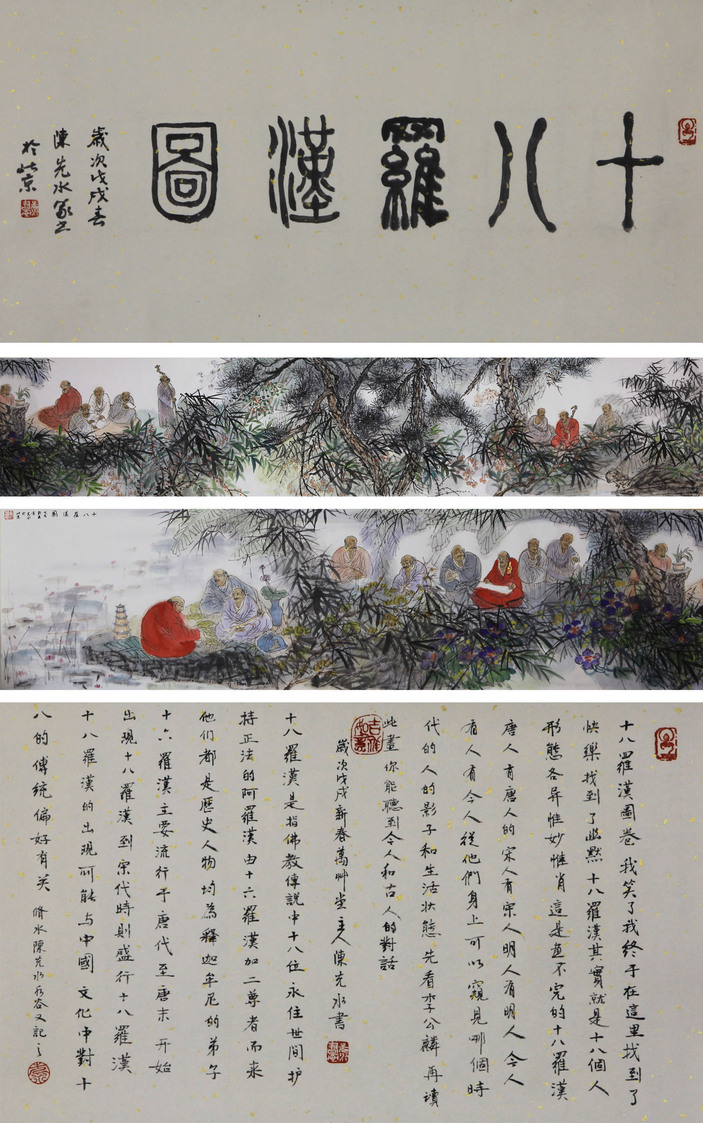 十八羅漢圖
歲次戊戌春
陳先水篆之
於北京
十八羅漢圖
十八羅漢圖卷 我笑了我終于在這里找到了
快樂找到了幽默十八羅漢其實就是十八個人
形態各异惟妙惟肖這是畫不完的十八羅漢
唐人有唐人的宋人有宋人明人有明人今人
有人有今人從他們身上可以窺見哪個時
代的人的影子和生活狀態先看李公麟再讀
此畫你能聽到今人和古人的對話
歲次戊戌新春萬艸堂主人陳先水書
十八羅漢是指佛教傳說中十八位永住世間护
持正法的阿羅漢由十六羅漢加二尊者而来
他们都是歷史人物均為釋迦牟尼的弟子
十六羅漢主要流行于唐代至唐末开始
出現十八羅漢到宋代時則盛行十八羅漢
十八羅漢的出現可能与中國文化中對十
八的傳統偏好有关 脩水陳先水又記之